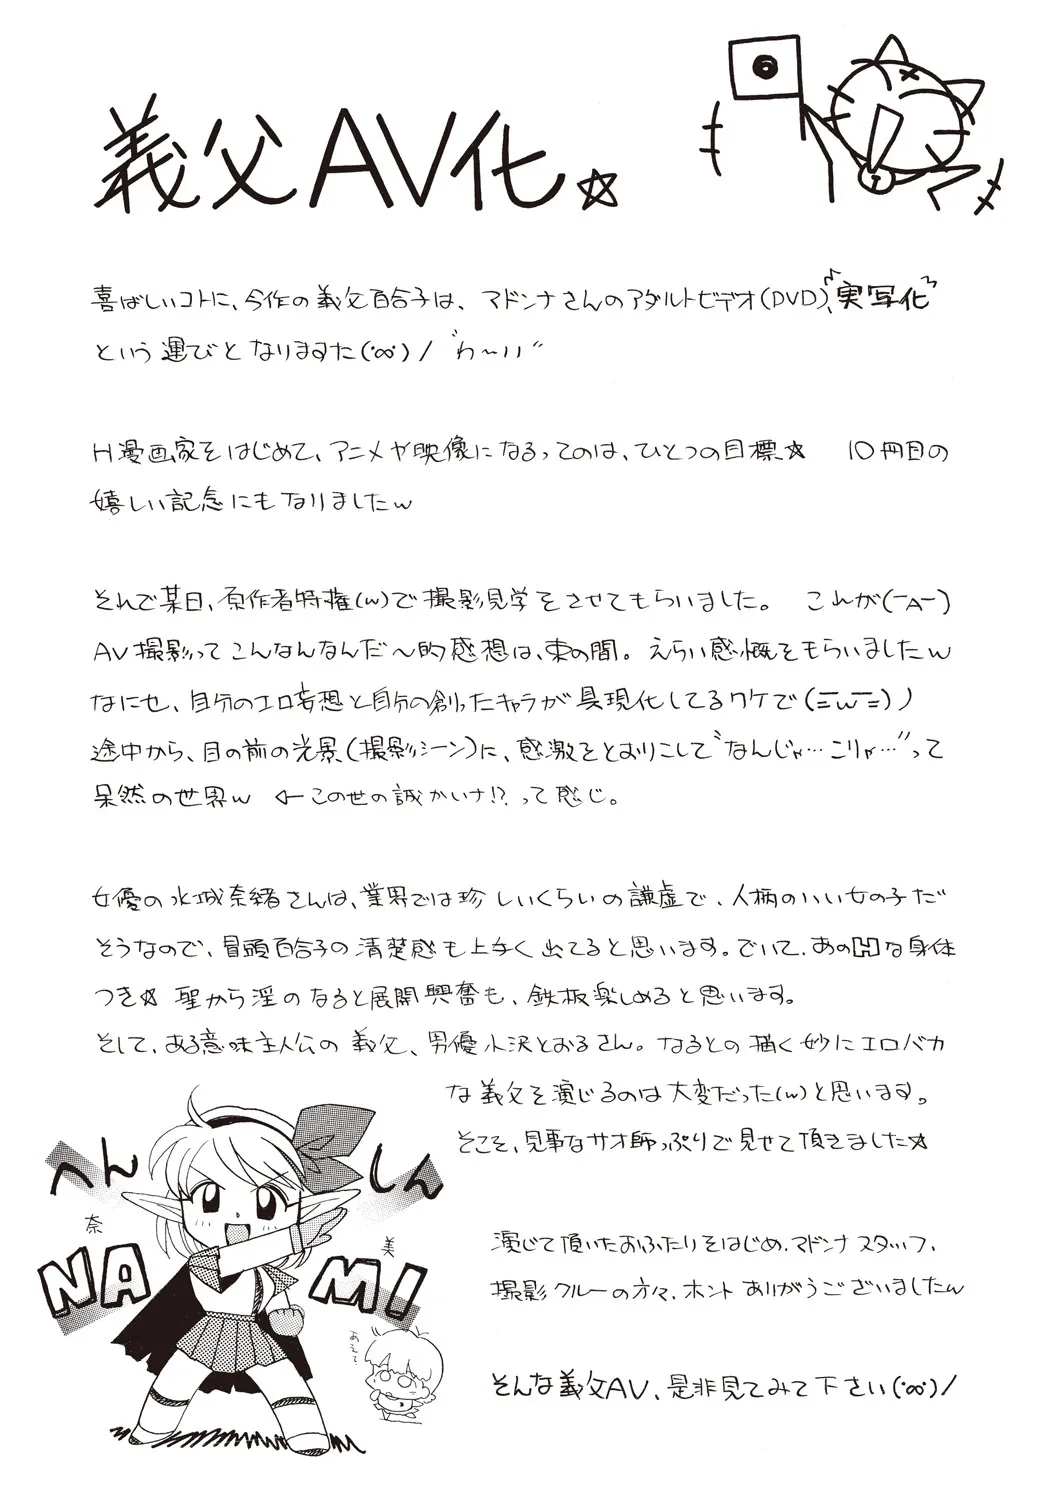 義父AV化☆
喜ばしいコトに、今作の義父百合子は、マドンナさんのアダルトビデオ(DVD)、"実写化"
という運びとなりますた(°∞°)/ "わ〜い"
H漫画家をはじめて、アニメや映像になるってのは、ひとつの目標☆ 10冊目の
嬉しい記念にもなりましたw
そんで某日、原作者特権(w)で撮影見学をさせてもらいました。 これが(￣A￣)
AV撮影ってこんなんなんだ〜的感想は、束の間。えらい感慨をもらいましたw
なにせ、自分のエロ妄想と自分の創ったキャラが具現化してるワケで(=w=)ノ
途中から、目の前の光景(撮影シーン)に、感激をとおりこして"なんじゃ…こりゃ…"って
呆然の世界w ←この世の誠かいナ!?って感じ。
女優の水城奈緒さんは、業界では珍しいくらいの謙虚で、人柄のいい女の子だ
そうなので、冒頭百合子の清楚感も上手く出てると思います。でいて、あのHな身体
つき☆ 聖から淫のなると展開興奮も、鉄板楽しめると思います。
そして、ある意味主人公の義父、男優小沢とおるさん。なるとの描く妙にエロバカ
な義父を演じるのは大変だった(w)と思います。
そこを、見事なサオ師っぷりで見せて頂きました☆
演じて頂いたおふたりをはじめ、マドンナスタッフ、
撮影クルーの方々、ホントありがうございましたw
そんな義父AV、是非見てみて下さい(°∞°)/
へん
しん
奈
NA
美
MI
あえて?